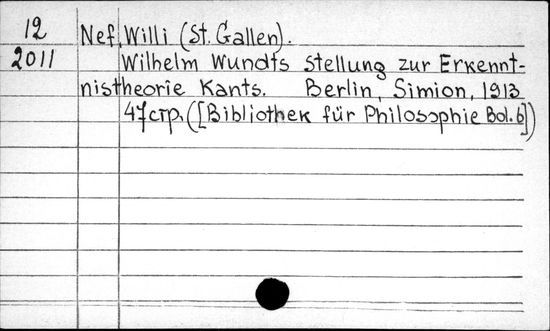 12 Nef, Willi (St. Gallen).
2011 Wilhelm Wundts Stellung zur Erkennt-
nistheorie Kants. Berlin, Simion, 1913
47стр. ([Bibliothek für Philosophie Bd. 6])